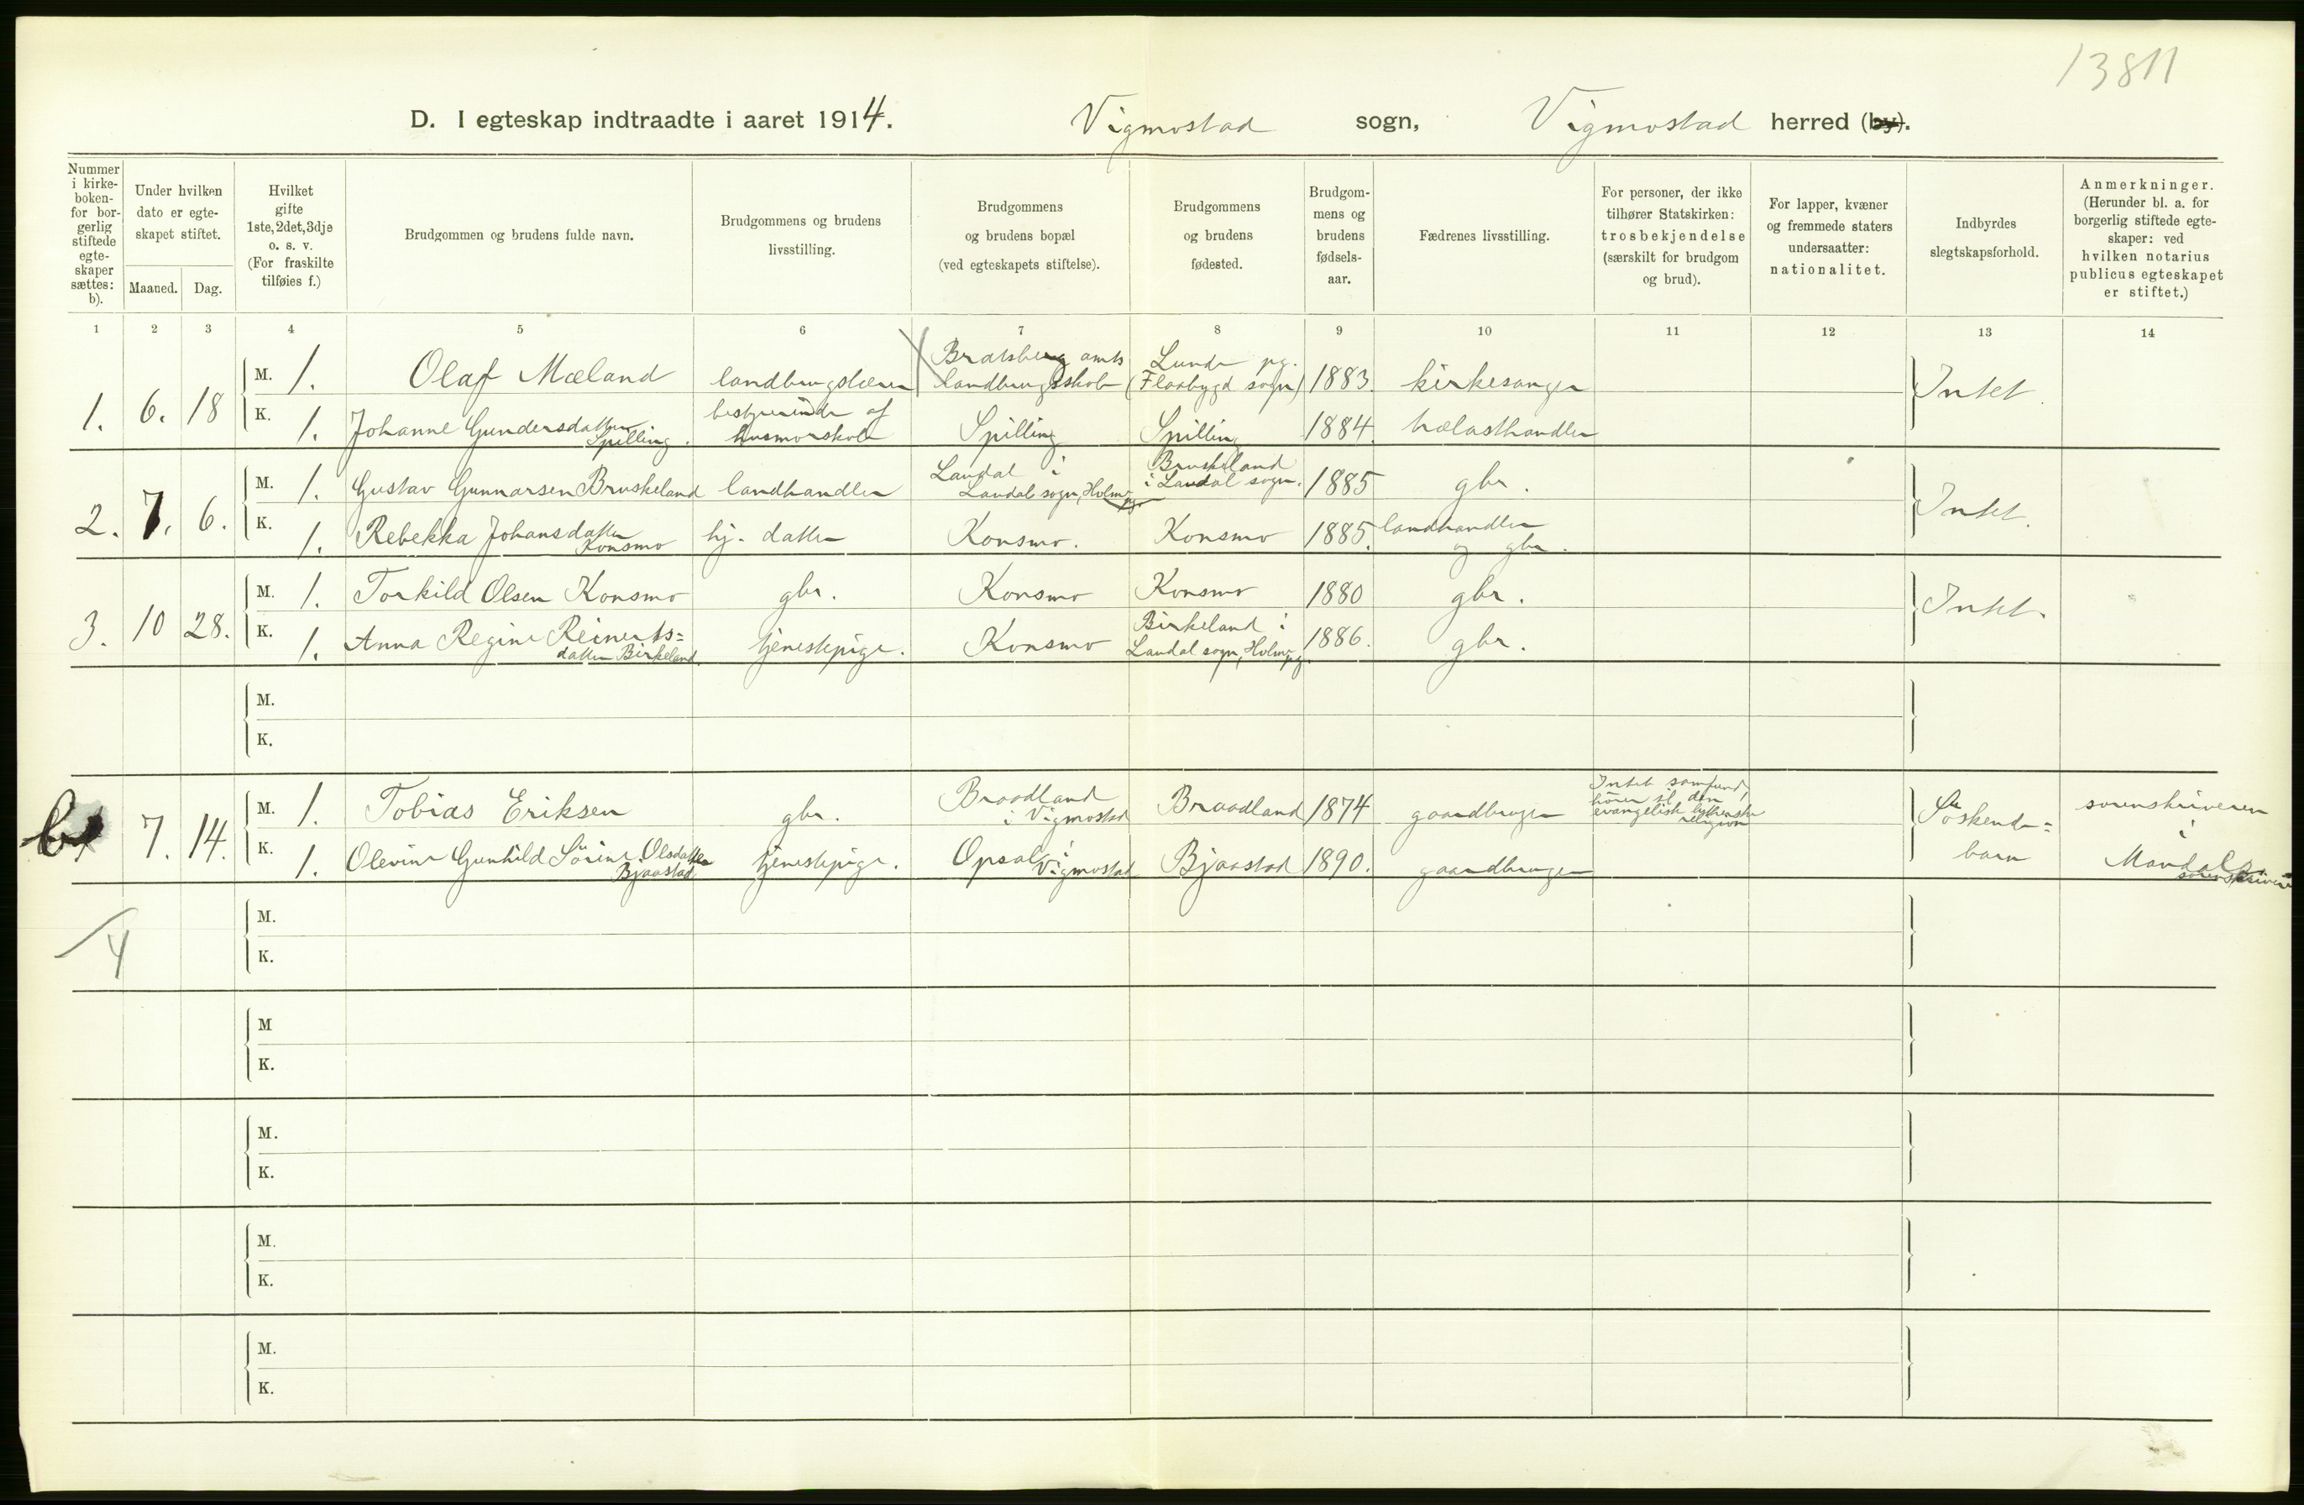 13811
D. I egteskap indtraadte i aaret 1914. Vigmostad sogn, Vigmostad herred (by).
Nummer i kirke-boken- for bor-gerlig stiftede egte-skaper sættes: b).
Under hvilken dato er egte-skapet stiftet.
Maaned. Dag.
Hvilket gifte 1ste, 2det, 3dje o. s. v. (For fraskilte tilføies f.)
Brudgommen og brudens fulde navn.
Brudgommens og brudens livsstilling.
Brudgommens og brudens bopæl (ved egteskapets stiftelse).
Brudgommens og brudens fødested.
Brudgom-mens og brudens fødsels-aar.
Fædrenes livsstilling.
For personer, der ikke tilhører Statskirken: trosbekjendelse (særskilt for brudgom og brud).
For lapper, kvæner og fremmede staters undersaatter: nationalitet.
Indbyrdes slegtskapsforhold.
Anmerkninger. (Herunder bl. a. for borgerlig stiftede egte-skaper: ved hvilken notarius publicus egteskapet er stiftet.)
1 2 3 4 5 6 7 8 9 10 11 12 13 14
1. 6. 18
M. 1. Olaf Mæland landbrugslærer Bratsberg amts landbrugsskole Lunde pg. (Flaabygd sogn) 1883. kirkesanger Intet.
K. 1. Johanne Gundersdatter Spilling. bestyrerinde af husmorskole Spilling Spilling 1884. trælasthandler
2. 7. 6.
M. 1. Gustav Gunnarsen Bruskeland landhandler Laudal i Laudal sogn, Holme pg. Bruskeland i Laudal sogn. 1885 gbr. Intet.
K. 1. Rebekka Johansdatter Konsmo hj. datter Konsmo. Konsmo 1885. landhandler og gbr.
3. 10 28.
M. 1. Torkild Olsen Konsmo gbr. Konsmo Konsmo 1880 gbr. Intet.
K. 1. Anna Regine Reinerts=datter Birkeland. tjenestepige. Konsmo Birkeland i Laudal sogn, Holme pg. 1886. gbr.
M.
K.
b. 7. 14.
M. 1. Tobias Eriksen gbr. Braadland i Vigmostad Braadland 1874 gaardbruger Intet samfund, hører til den evangelisk lutherske religion Søskende=barn sorenskriveren i Mandal sorenskriveri
K. 1. Olevine Gunhild Sørine Olsdatter Bjaastad tjenestepige. Opsal i Vigmostad Bjaastad 1890. gaardbruger
4
M.
K.
M
K.
M.
K.
M.
K.
M.
K.